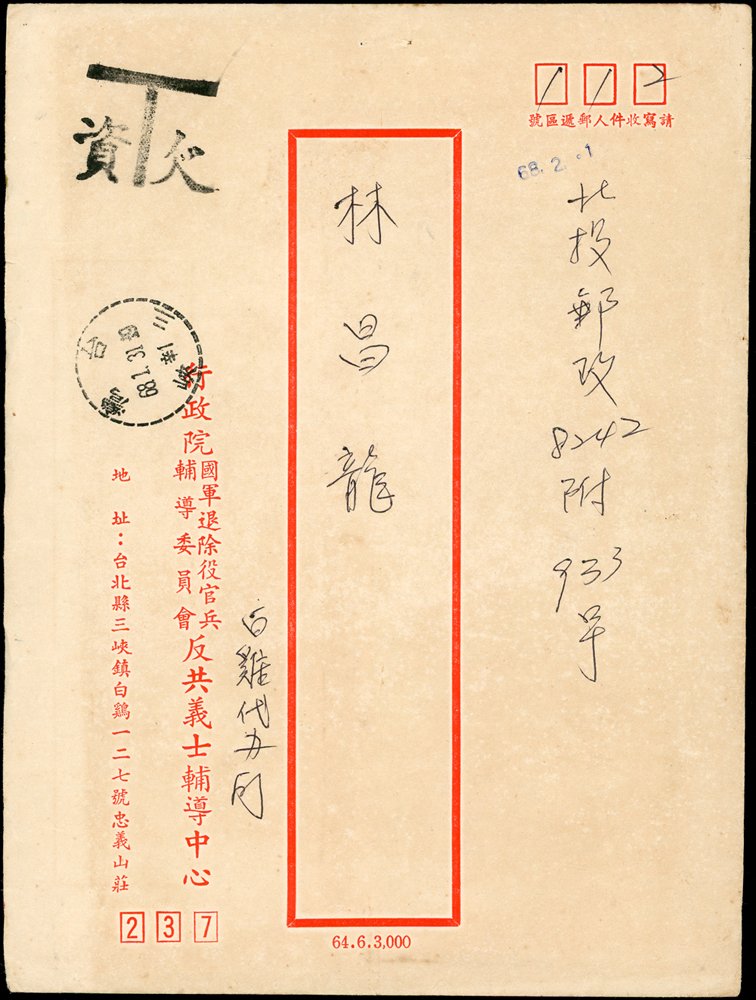 112
請寫收件人郵遞區號
68.2.-1
北投郵政8242附933号
林昌龍
白雞代办所
行政院國軍退除役官兵輔導委員會反共義士輔導中心
地址：台北縣三峽鎮白鷄一二七號忠義山莊
237
64.6.3,000
台灣
68.1.31
三峽
資
欠
T